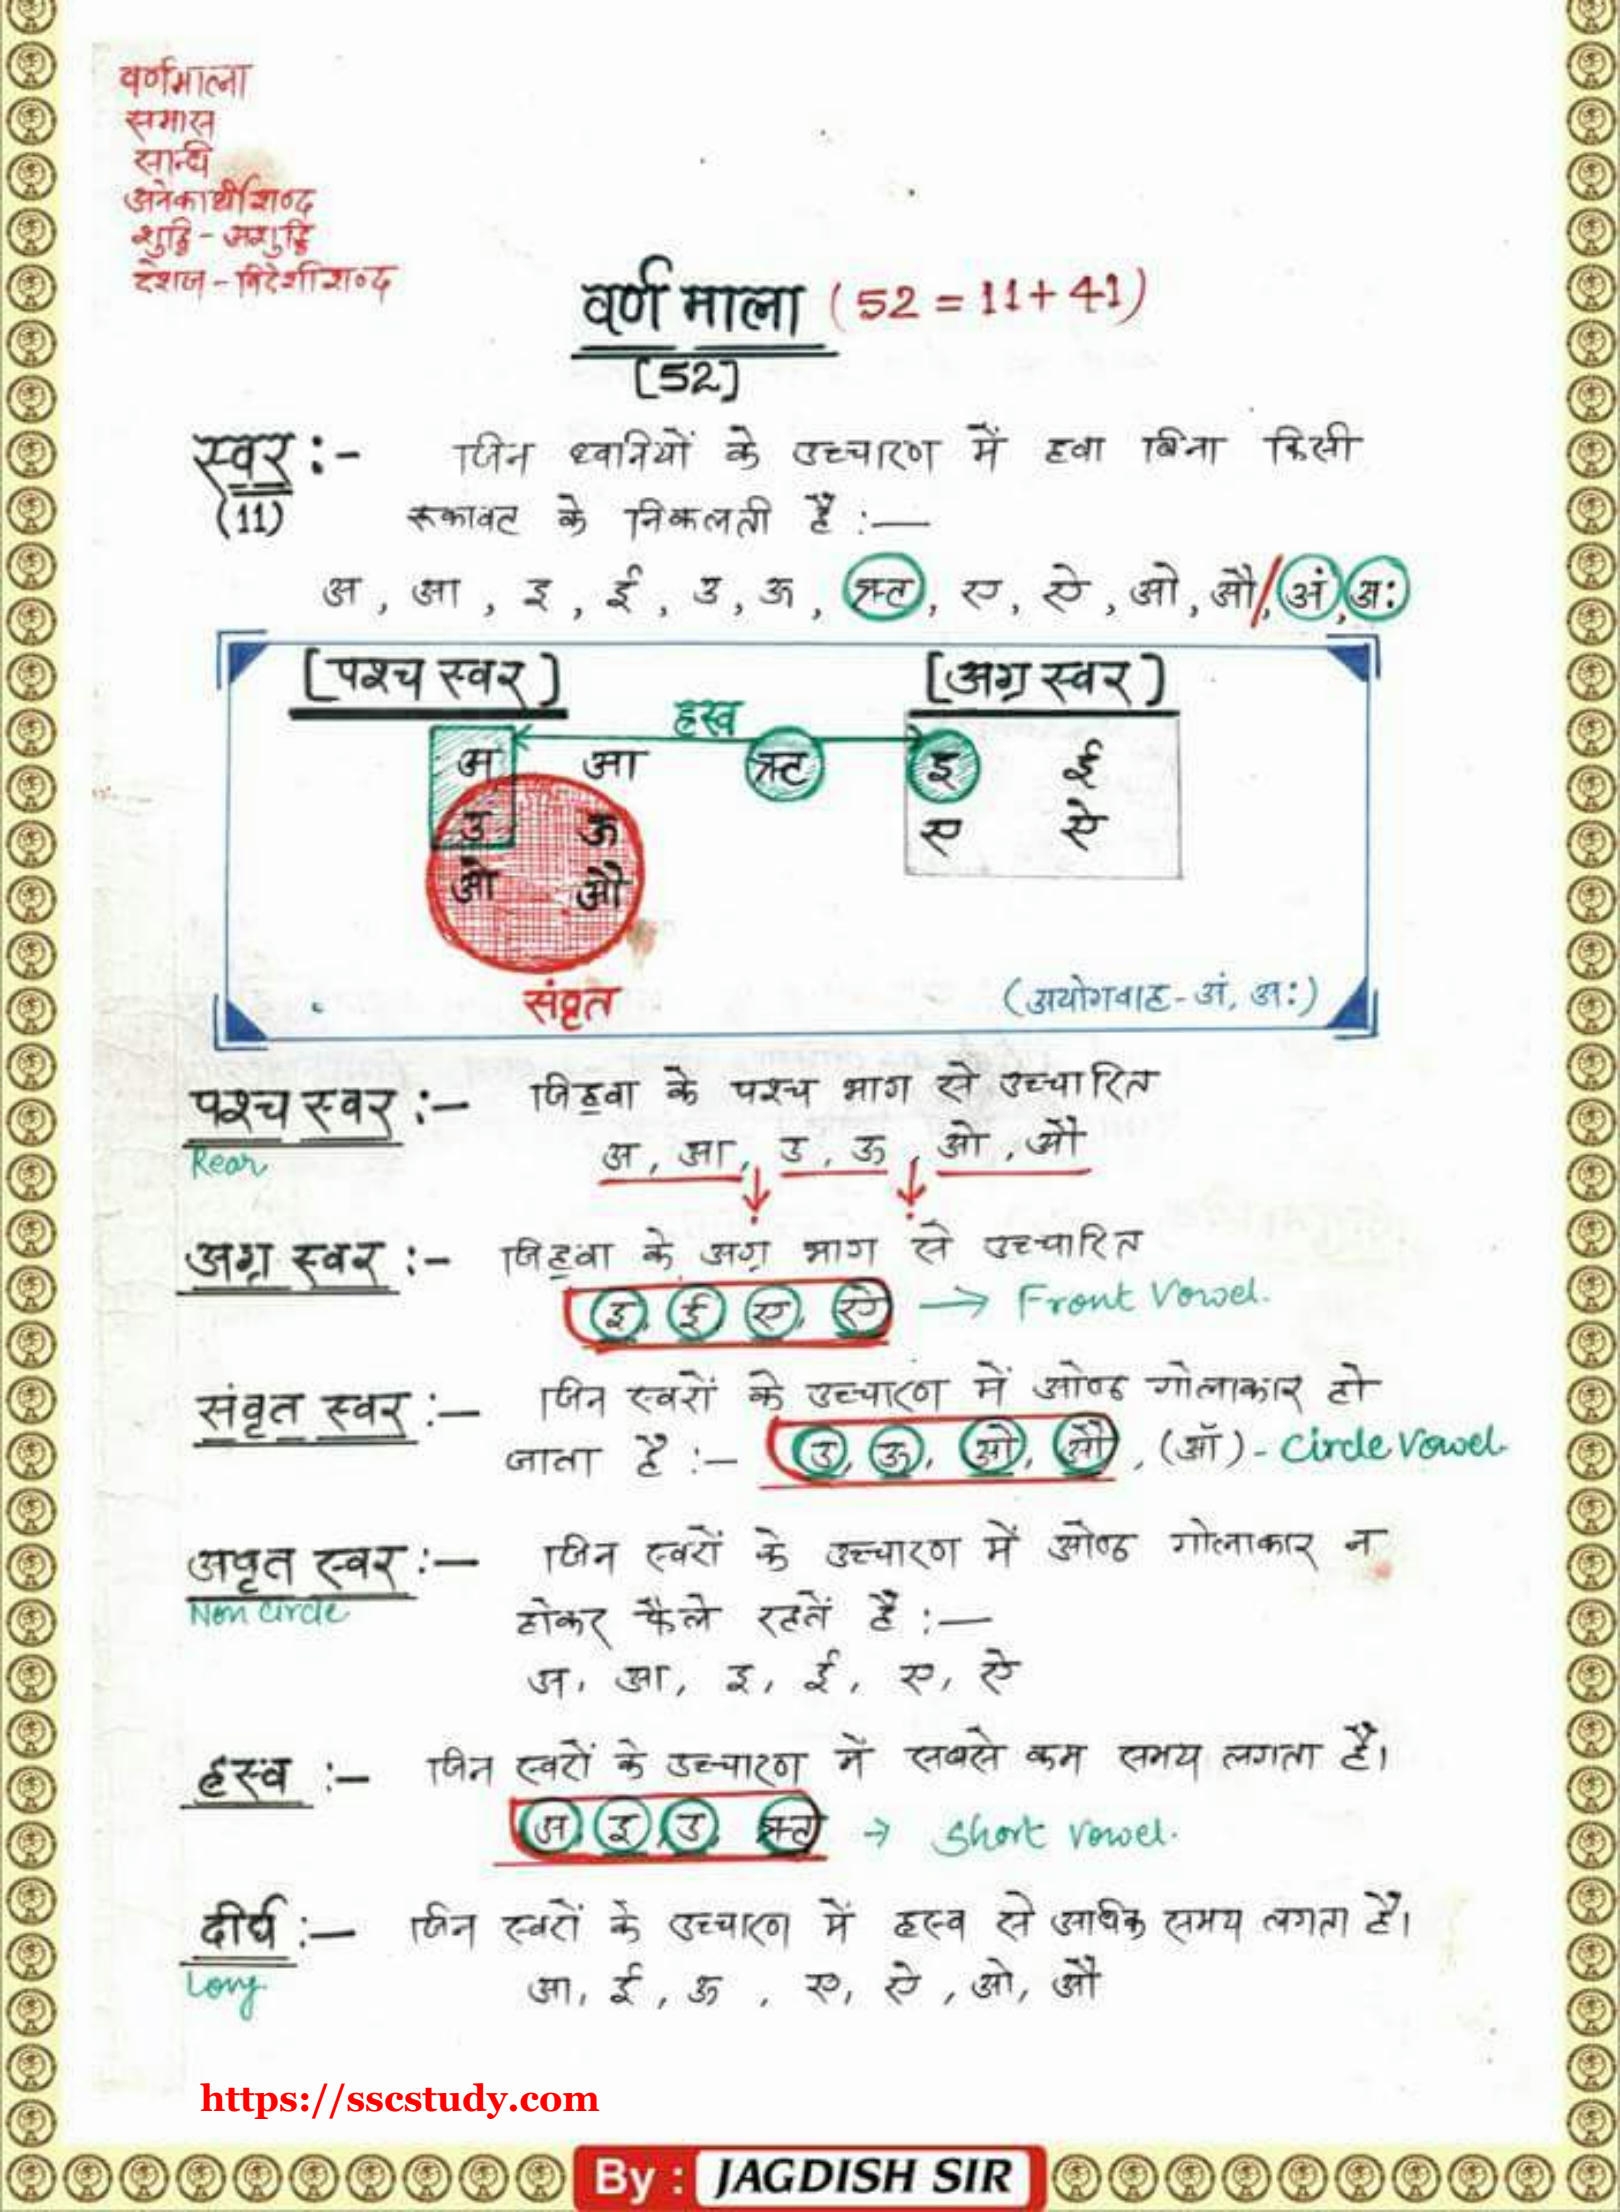 वर्णमाला
समास
सन्धि
अनेकार्थी शब्द
शुद्धि - अशुद्धि
देशज - विदेशी शब्द
वर्ण माला ( 52 = 11 + 41 )
[52]
स्वर :- जिन ध्वनियों के उच्चारण में हवा बिना किसी
(11) रूकावट के निकलती हैं :—
अ, आ, इ, ई, उ, ऊ, ऋ, ए, ऐ, ओ, औ / अं, अः
[पश्च स्वर] [अग्र स्वर]
ह्रस्व
अ आ ऋ इ ई
उ ऊ ए ऐ
ओ औ
संवृत (अयोगवाह - अं, अः)
पश्च स्वर :- जिह्वा के पश्च भाग से उच्चारित
Rear अ, आ, उ, ऊ, ओ, औ
अग्र स्वर :- जिह्वा के अग्र भाग से उच्चारित
इ, ई, ए, ऐ → Front Vowel.
संवृत स्वर :— जिन स्वरों के उच्चारण में ओष्ठ गोलाकार हो
जाता है :— उ, ऊ, ओ, औ, (ऑ) - Circle Vowel.
अवृत स्वर :— जिन स्वरों के उच्चारण में ओष्ठ गोलाकार न
Non circle होकर फैले रहतें हैं :—
अ, आ, इ, ई, ए, ऐ
ह्रस्व :— जिन स्वरों के उच्चारण में सबसे कम समय लगता है।
अ, इ, उ, ऋ → Short vowel.
दीर्घ :— जिन स्वरों के उच्चारण में ह्रस्व से अधिक समय लगता है।
Long आ, ई, ऊ, ए, ऐ, ओ, औ
https://sscstudy.com
By : JAGDISH SIR